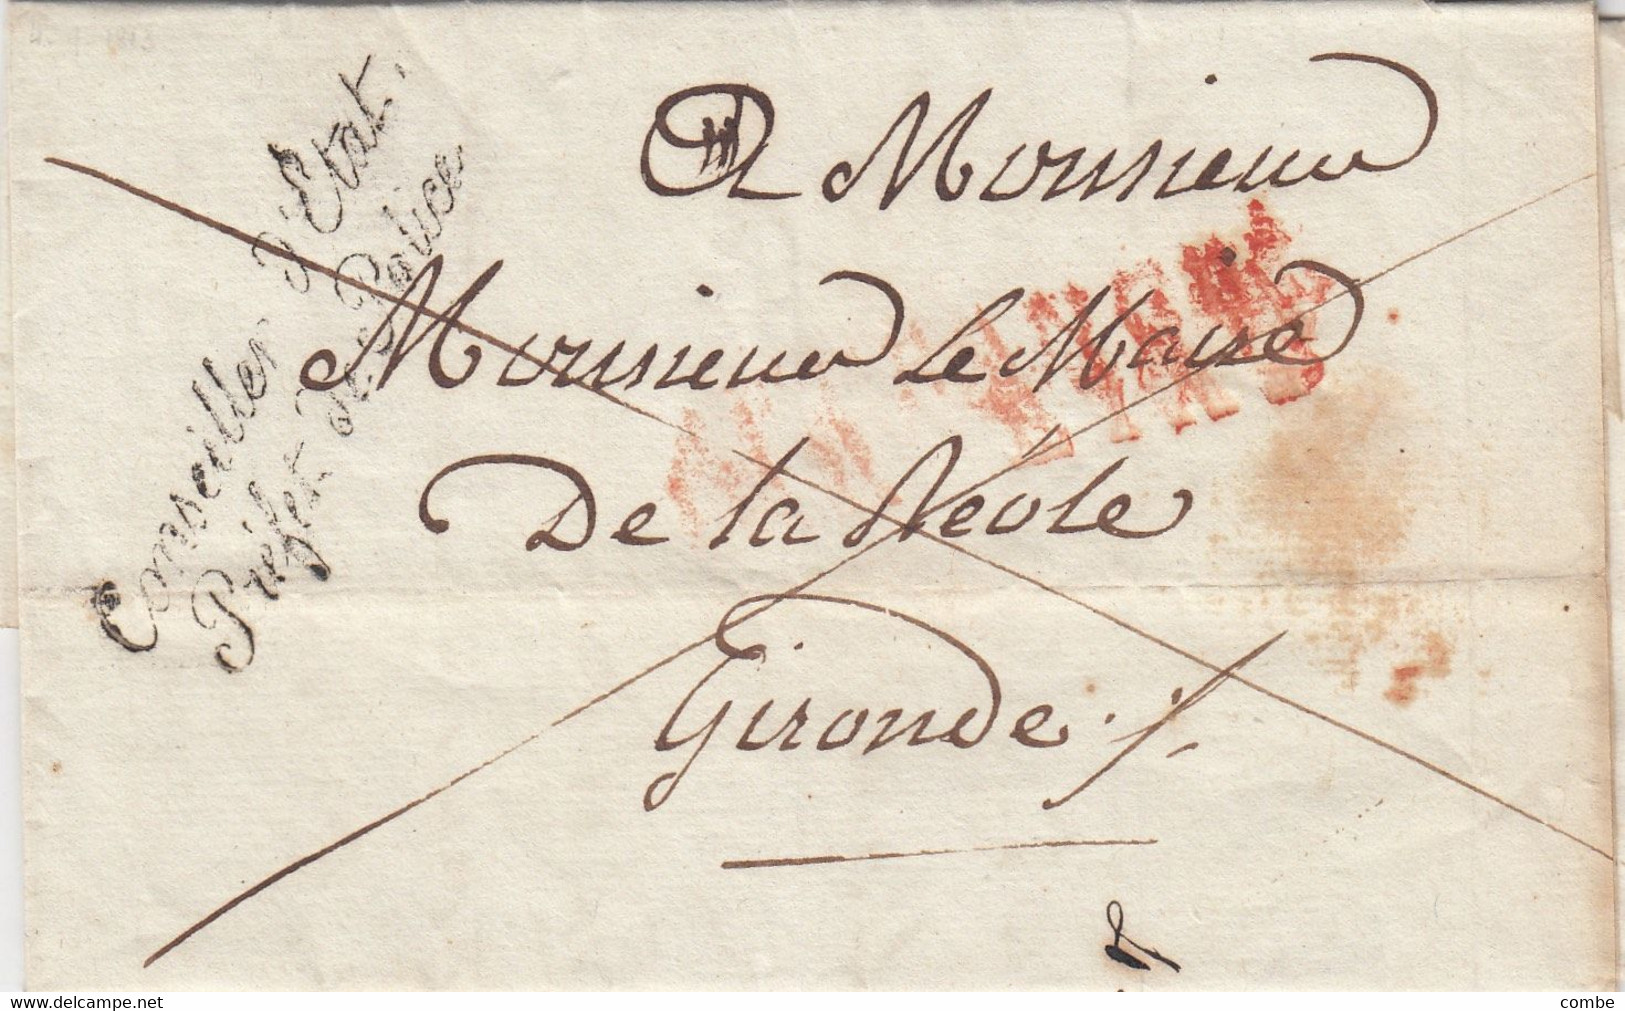 Conseiller d'Etat,
Préfet de Police
A Monsieur
Monsieur le Maire
De la Réole
Gironde
www.delcampe.net
combe